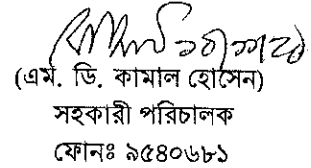 (এম. ডি. কামাল হোসেন)
সহকারী পরিচালক
ফোনঃ ৯৫৪০৬৮১